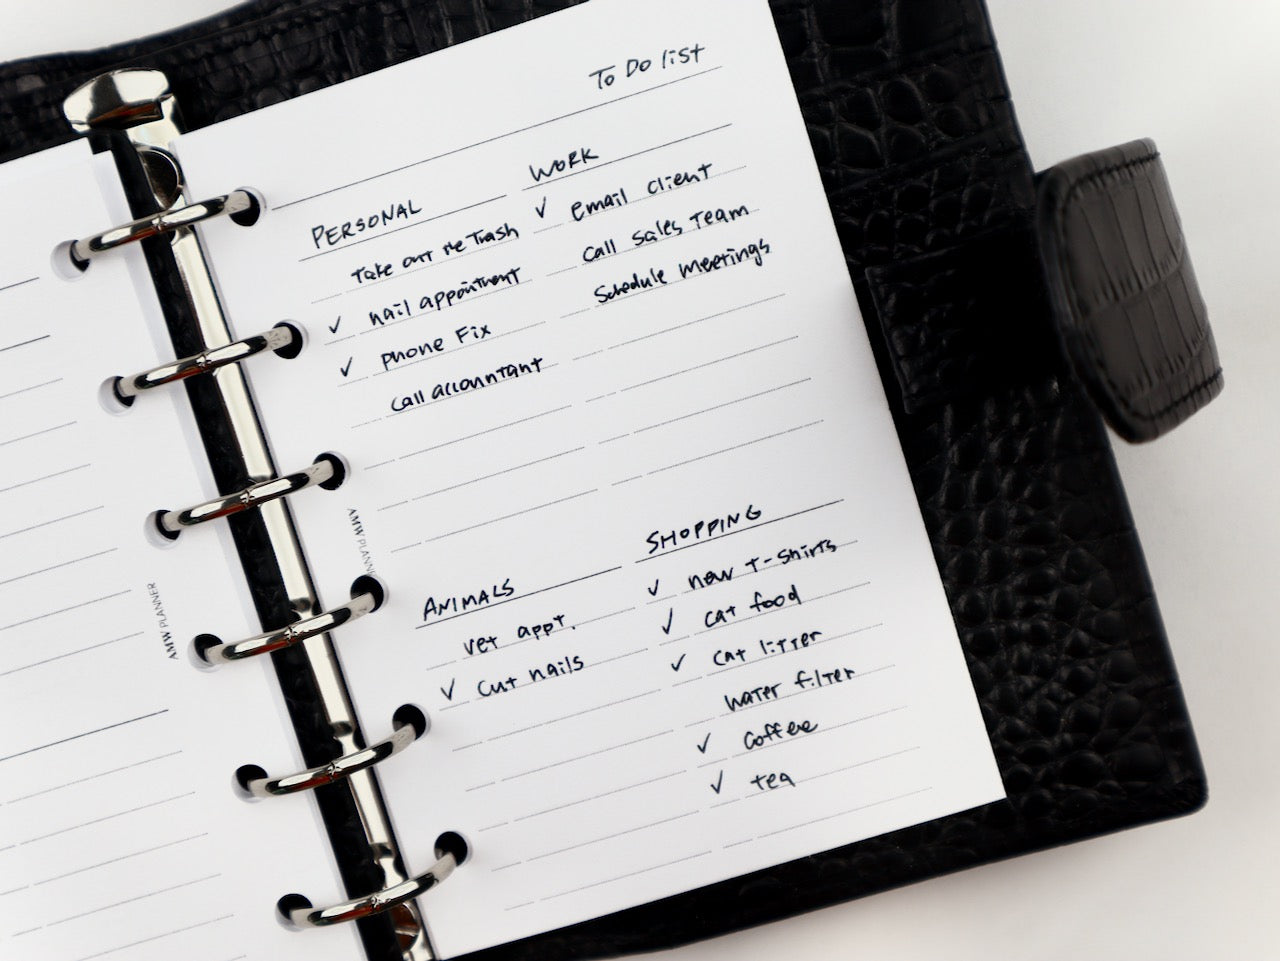 To Do list
PERSONAL
Take out the Trash
✓ nail appointment
✓ phone Fix
call accountant
WORK
✓ email client
call sales Team
Schedule meetings
ANIMALS
vet appt.
✓ cut nails
SHOPPING
✓ new t-shirts
✓ cat food
✓ cat litter
water filter
✓ coffee
✓ tea
AMW PLANNER
AMW PLANNER